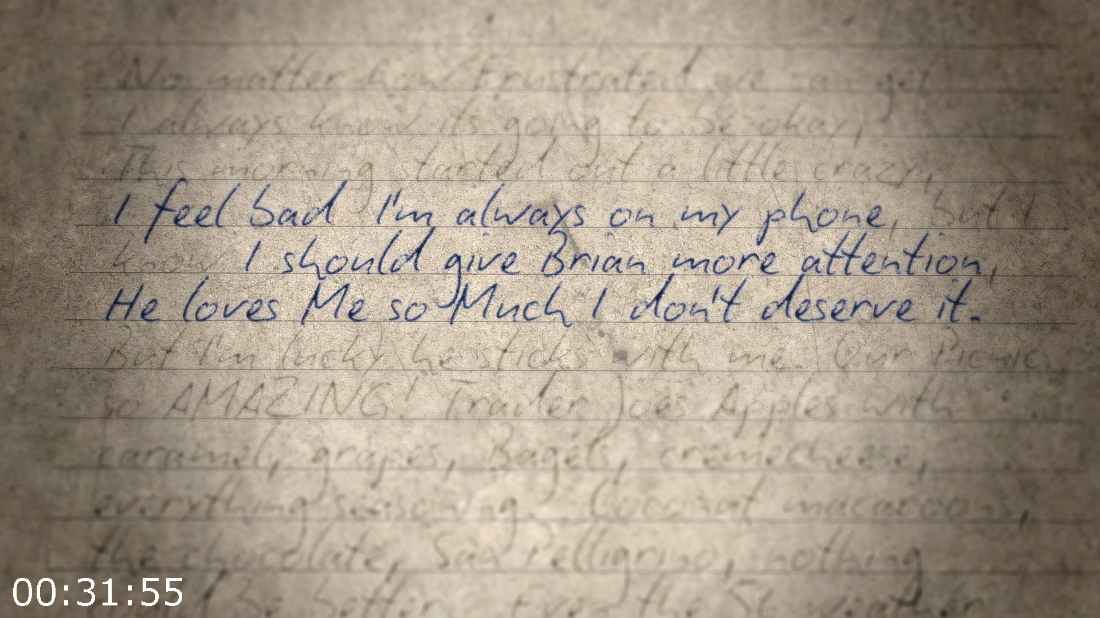 No matter how frustrated we can get
I always know its going to be okay,
This morning started out a little crazy,
I feel bad I'm always on my phone, but I
know I should give Brian more attention,
He loves Me so Much I don't deserve it.
But I'm lucky he sticks with me. Our Picnic
so AMAZING! Trader Joes Apples with
caramel, grapes, Bagels, cremecheese,
everything seasoning, Coconut macaroons,
the chocolate, San Pelligrino, nothing
be better weather
00:31:55